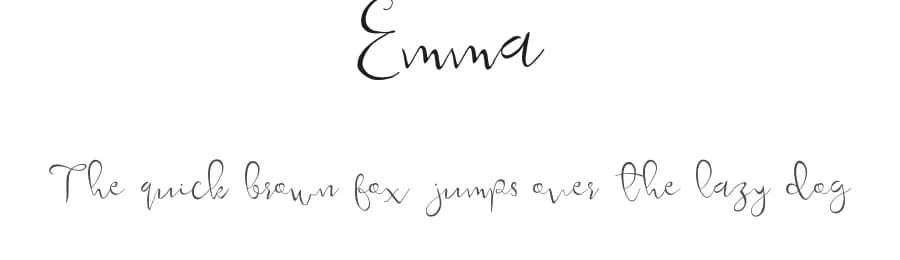 Emma
The quick brown fox jumps over the lazy dog